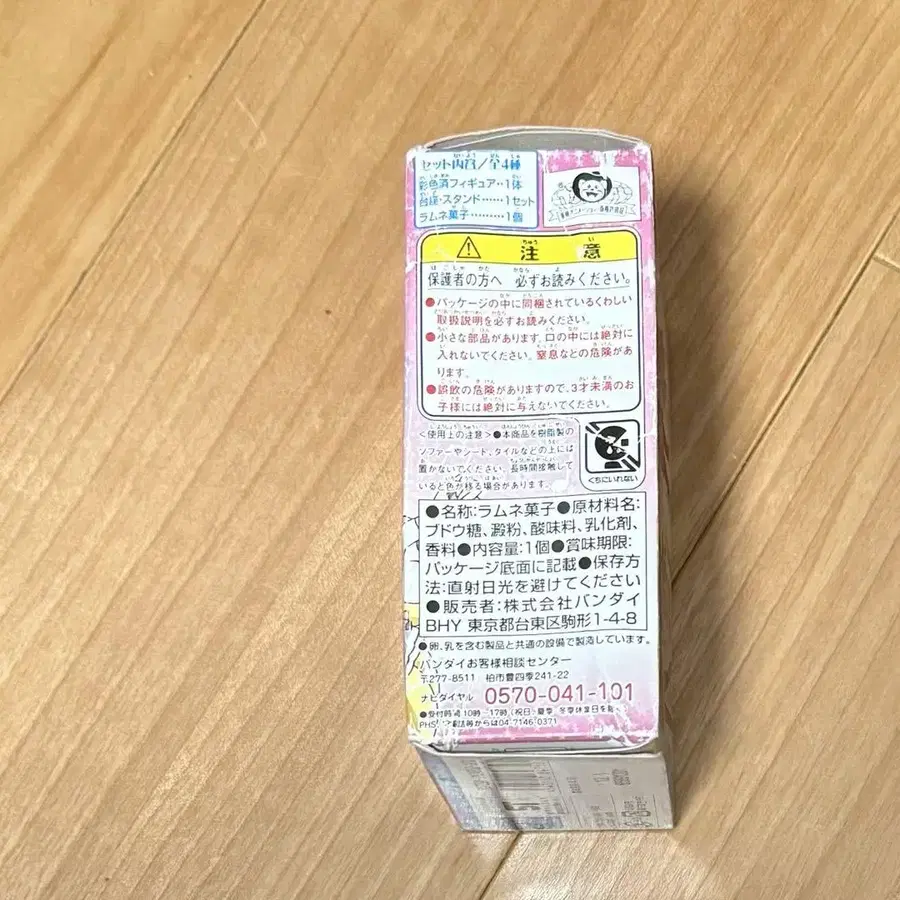 セット内容/全4種
彩色済フィギュア‥1体
台座・スタンド……1セット
ラムネ菓子………1個
注意
保護者の方へ 必ずお読みください。
●パッケージの中に同梱されているくわしい
取扱説明を必ずお読みください。
●小さな部品があります。口の中には絶対に
入れないでください。窒息などの危険があ
ります。
●誤飲の危険がありますので、3才未満のお
子様には絶対に与えないでください。
<使用上の注意>●本商品を樹脂製の
ソファーやシート、タイルなどの上には
置かないでください。長時間接触して
いると色が移る場合があります。
くちにいれない
●名称:ラムネ菓子●原材料名:
ブドウ糖、澱粉、酸味料、乳化剤、
香料●内容量:1個●賞味期限:
パッケージ底面に記載●保存方
法:直射日光を避けてください
●販売者:株式会社バンダイ
BHY 東京都台東区駒形1-4-8
●卵、乳を含む製品と共通の設備で製造しています。
バンダイお客様相談センター
〒277-8511 柏市豊四季241-22
ナビダイヤル 0570-041-101
●受付時間10時~17時(祝日、夏季、冬季休業日を除く)
PHS、 話等からは04-7146-0371